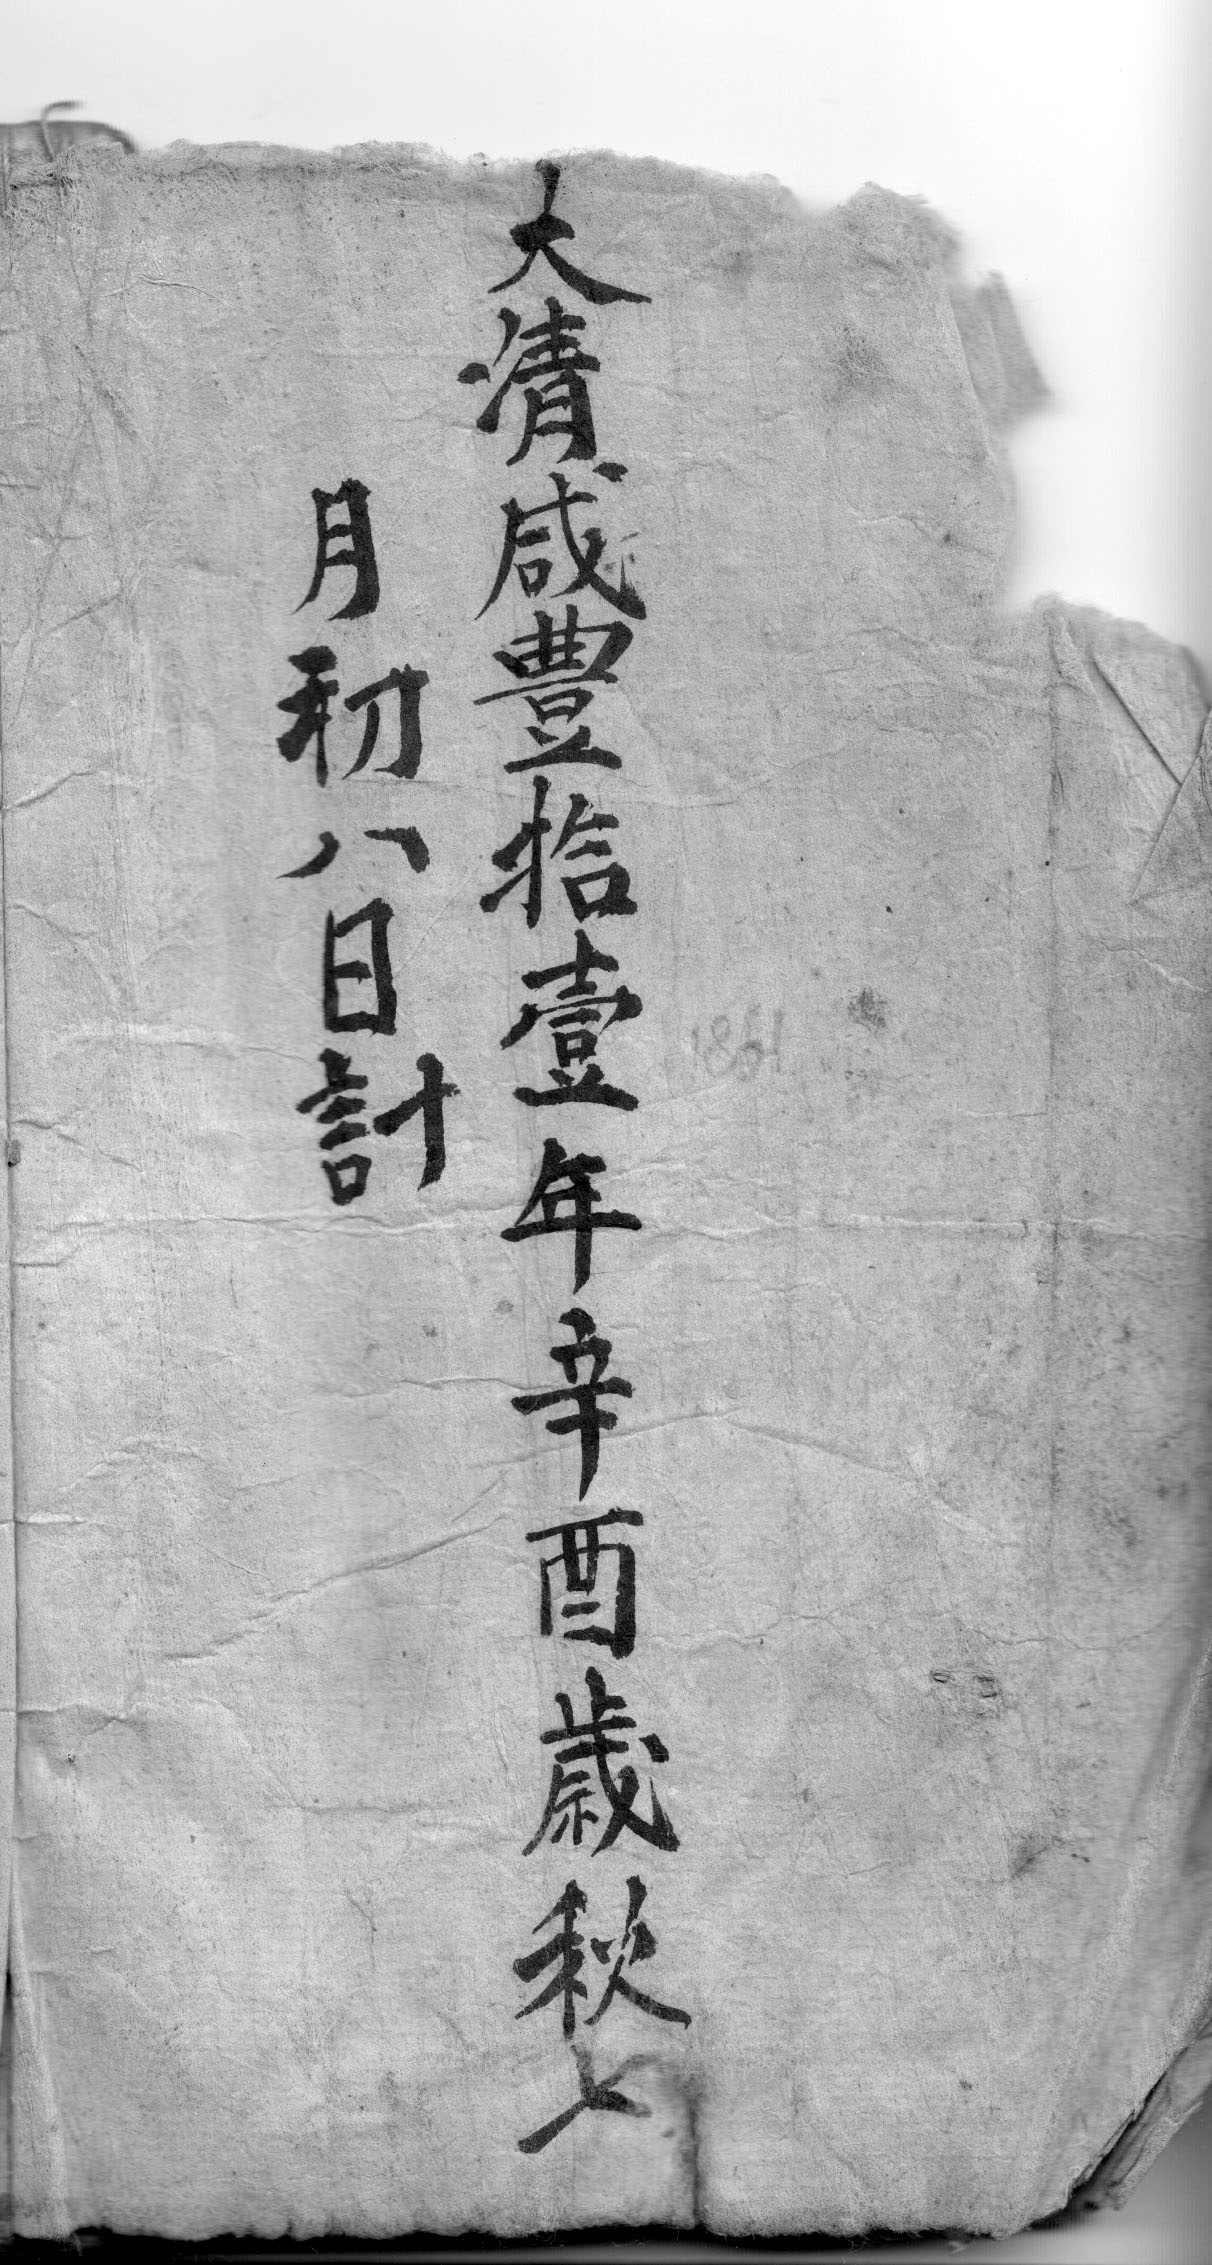 大清咸豊拾壹年辛酉歲秋七
月初八日計
1861